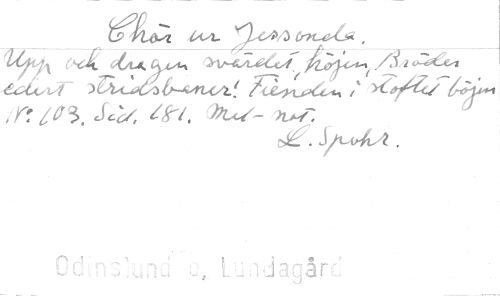 Chör ur Jessonda.
Upp och dragen svärdet, höjen, Bröder
edert stridsbaner! Fienden i stoftet böjen
No. 103. Sid. 181. Mel-not.
L. Spohr.
Odinslund o, Lundagård